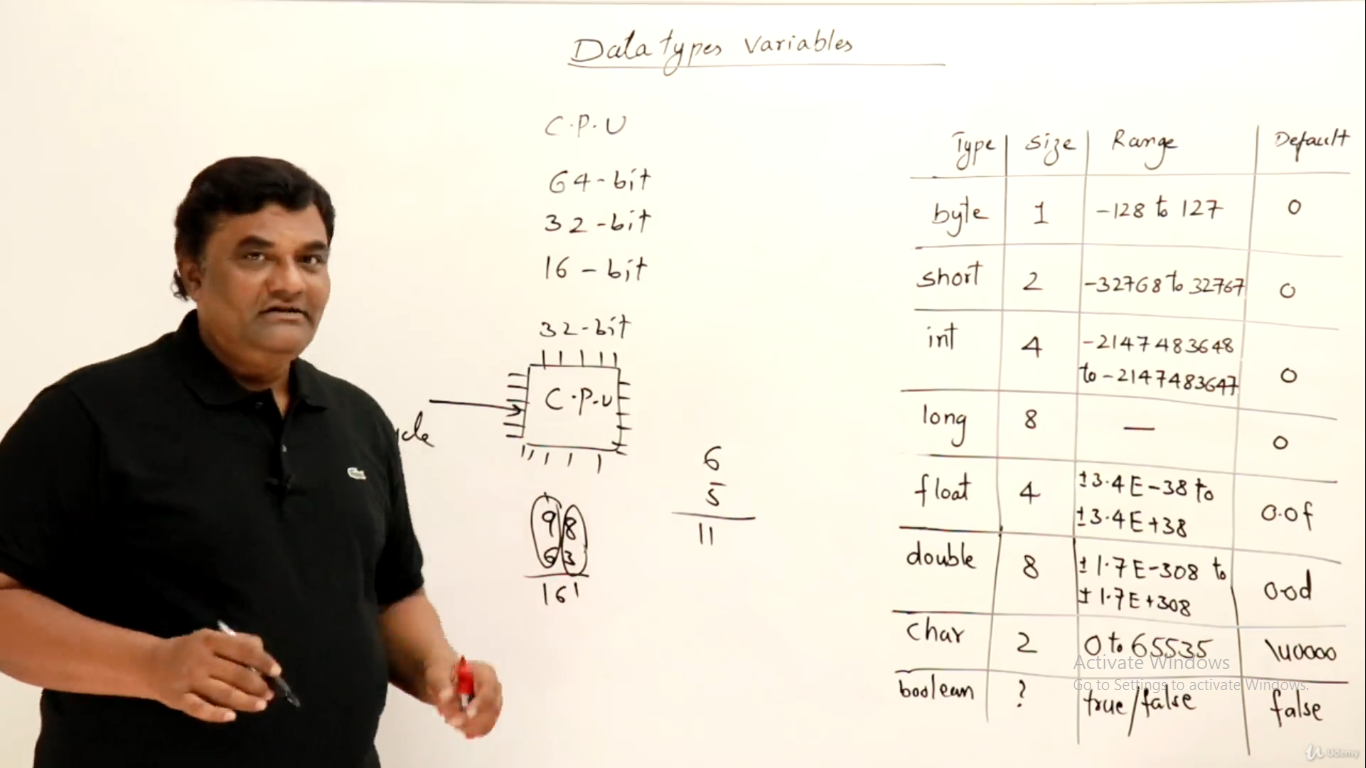 Data types Variables
C.P.U
64-bit
32-bit
16-bit
32-bit
C.P.U
98
63
161
6
5
11
Type Size Range Default
byte 1 -128 to 127 0
short 2 -32768 to 32767 0
int 4 -2147483648
to -2147483647 0
long 8 — 0
float 4 ±3.4E-38 to
±3.4E+38 0.0f
double 8 ±1.7E-308 to
±1.7E+308 0.0d
char 2 0 to 65535 \u0000
boolean ? true/false false
Activate Windows
Go to Settings to activate Windows.
Udemy